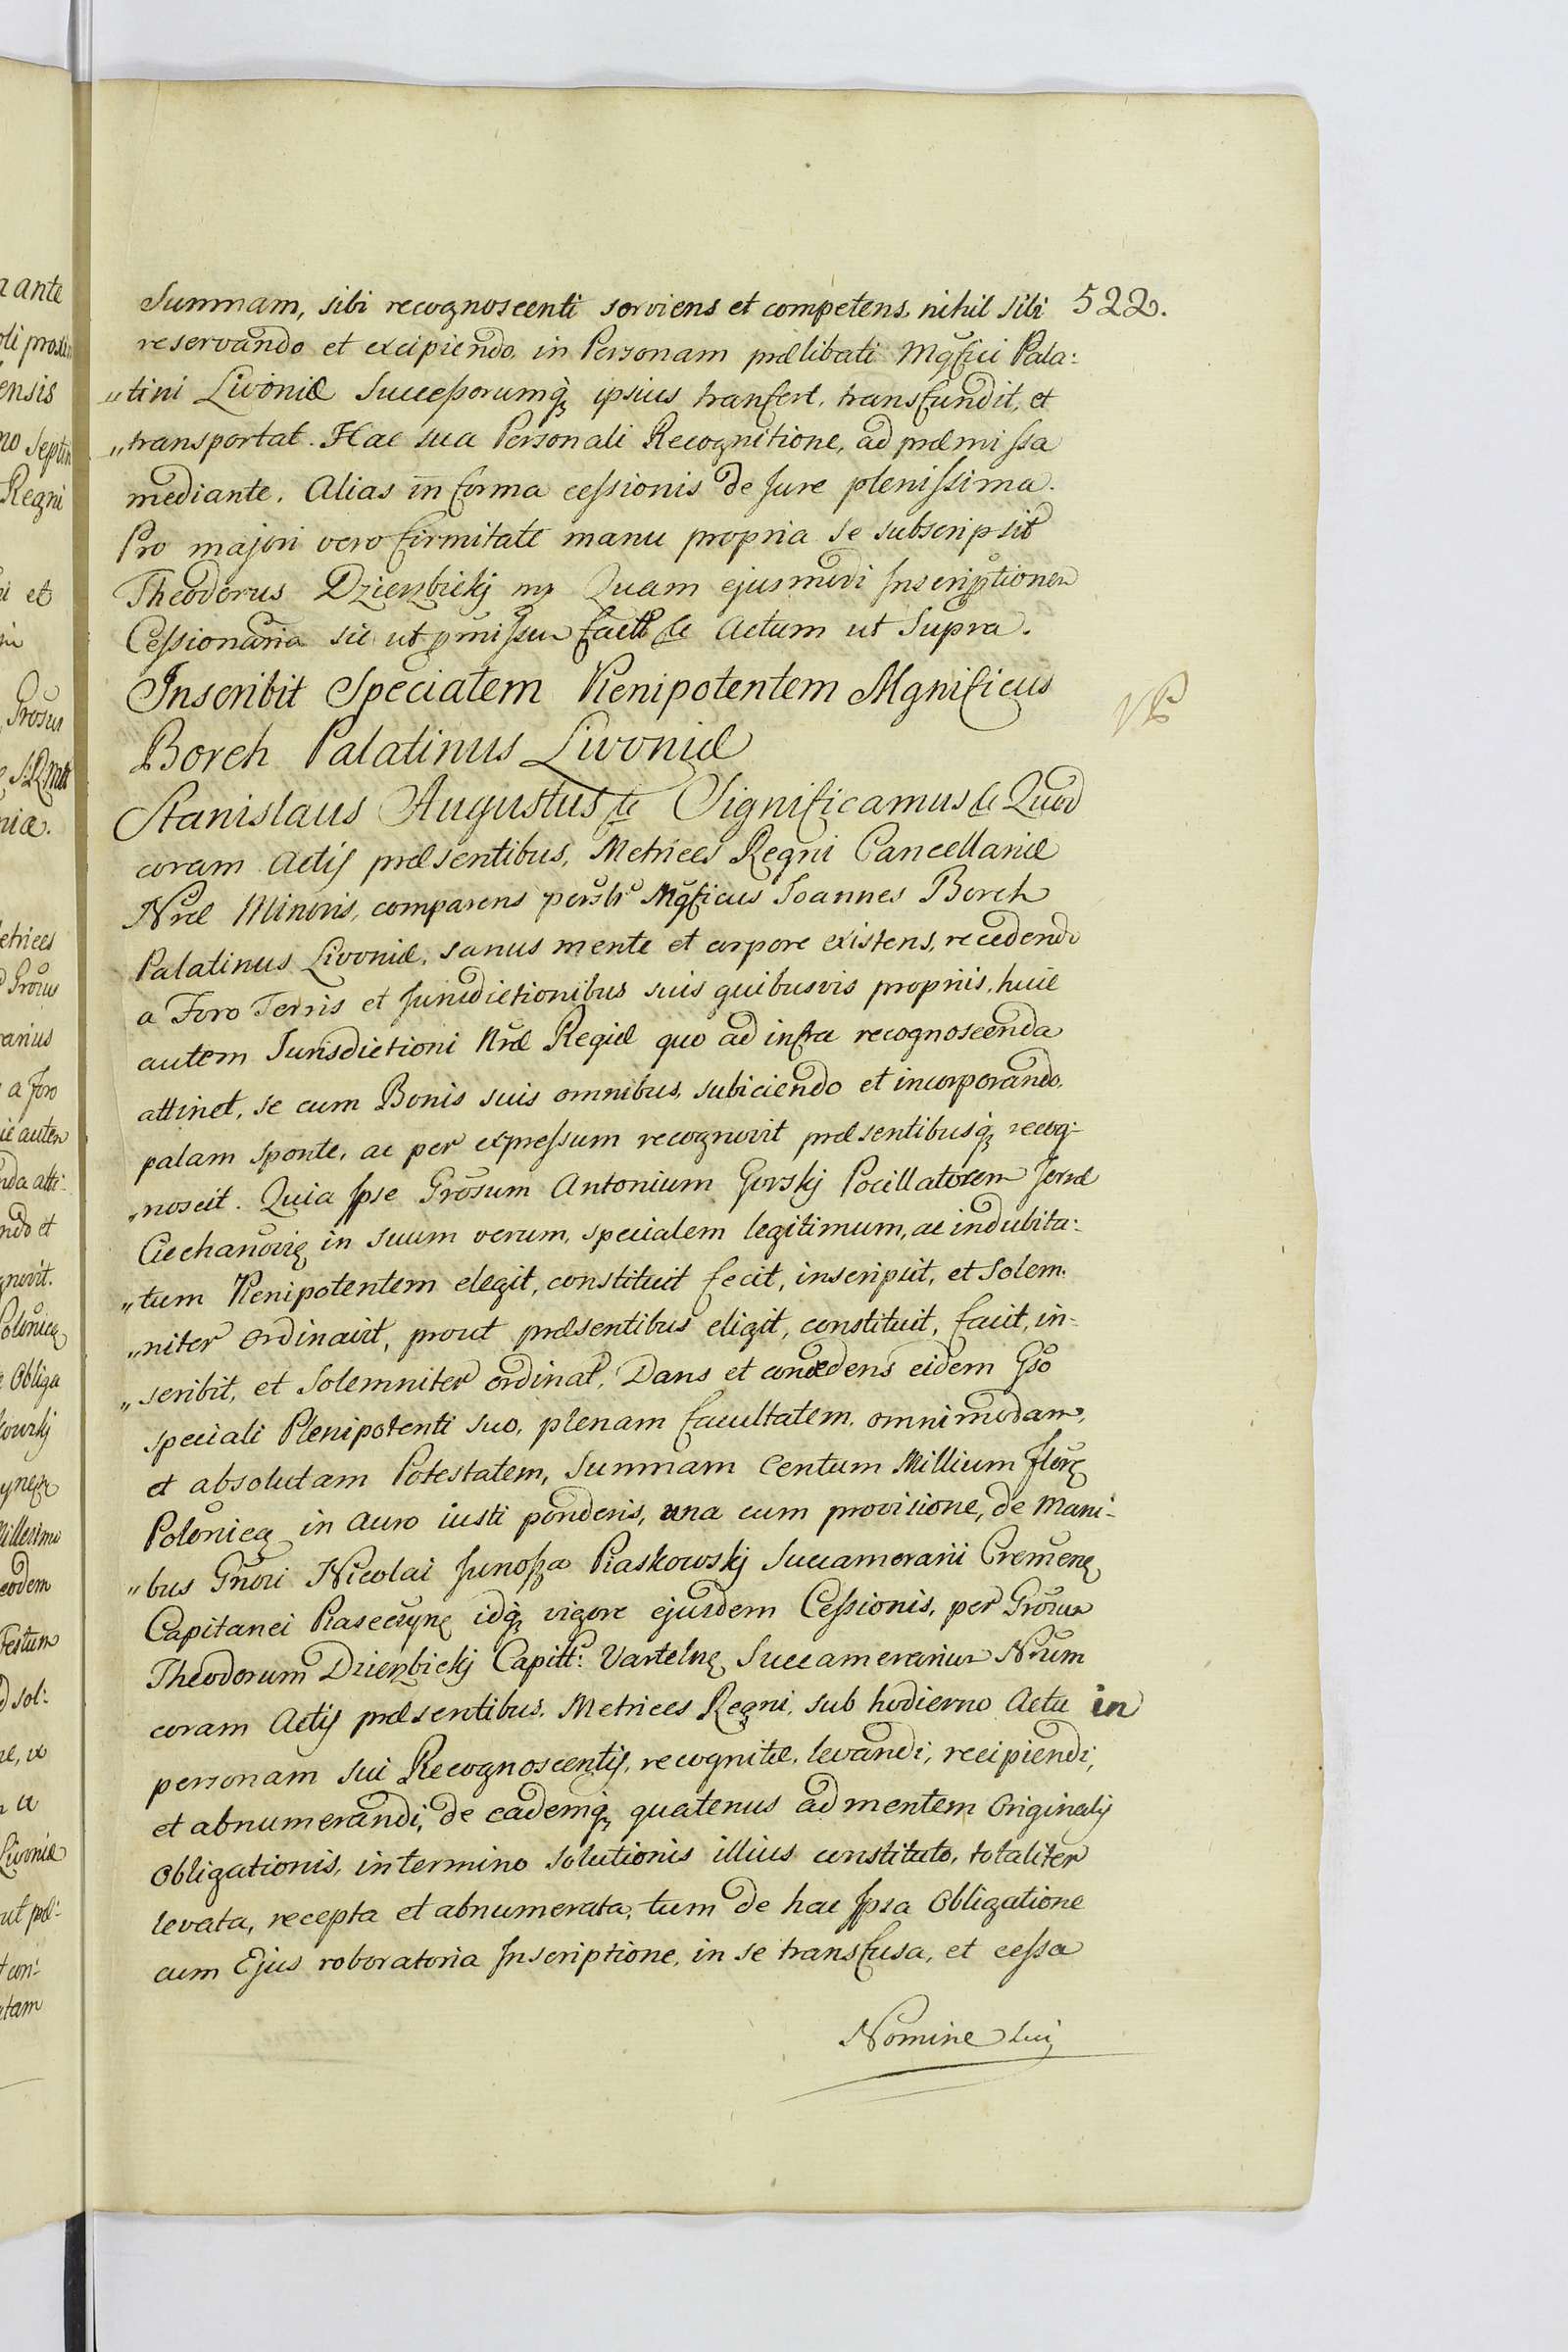 Summam, sibi recognoscenti serviens et competens, nihil sibi 522.
reservando et excipiendo, in Personam prælibati Mgfici Pala:
„tini Livoniæ Successorumq3 ipsius tranfert, transfundit, et
„transportat. Hac sua Personali Recognitione, ad præmissa
mediante. Alias in forma cessionis de Jure plenissima.
Pro majori vero firmitate manu propria se subscripsit
Theodorus Dzierzbickj mp Quam ejusmodi Inscriptionem
Cessionaria sic ut pmissum factt &c Actum ut Supra.
Inscribit Specialem Plenipotentem Mgnificus
Borch Palatinus Livoniæ
Stanislaus Augustus &c Significamus &c Quod
coram Actis præsentibus, Metrices Regni Cancellariæ
Nræ Minoris, comparens persolr Mgficus Joannes Borch
Palatinus Livoniæ, sanus mente et corpore existens, recedendo
a Foro Terris et Jurisdictionibus suis quibusvis propriis, huic
autem Jurisdictioni Nræ Regiæ quo ad infra recognoscenda
attinet, se cum Bonis suis omnibus, subiciendo et incorporando,
palam sponte, ac per expressum recognovit præsentibusq3 recog-
„noscit. Quia Ipse Grosum Antonium Gorskj Pocillatorem Terræ
Ciechanovię in suum verum, specialem legitimum, ac indubita:
„tum Plenipotentem elegit, constituit fecit, inscripsit, et Solem:
„niter Ordinavit, prout præsentibus eligit, constituit, facit, in-
„scribit, et Solemniter ordinat, Dans et concedens eidem Gso
speciali Plenipotenti suo, plenam facultatem, omnimodam,
et absolutam Potestatem, Summam Centum Millium florę
Polonica in Auro iusti ponderis, una cum provisione, de Mani-
„bus Gnori Nicolai Junosza Piaskowskj Succamerarii Cremenę
Capitanei Piasecsynę idq3 vigore ejusdem Cessionis, per Grosum
Theodorum Dzierzbickj Capitt: Vartelnę Succamerarium Nrum
coram Actis præsentibus, Metrices Regni, sub hodierno Actu in
personam sui Recognoscentis, recognitæ, levandi, recipiendi,
et abnumerandi, de eademq3 quatenus ad mentem Originalis
Obligationis, in termino solutionis illius constituto, totaliter
levata, recepta et abnumerata, tum de hac Ipsa Obligatione
cum Ejus roboratoria Inscriptione, in se transfusa, et cessa
Nomine sui